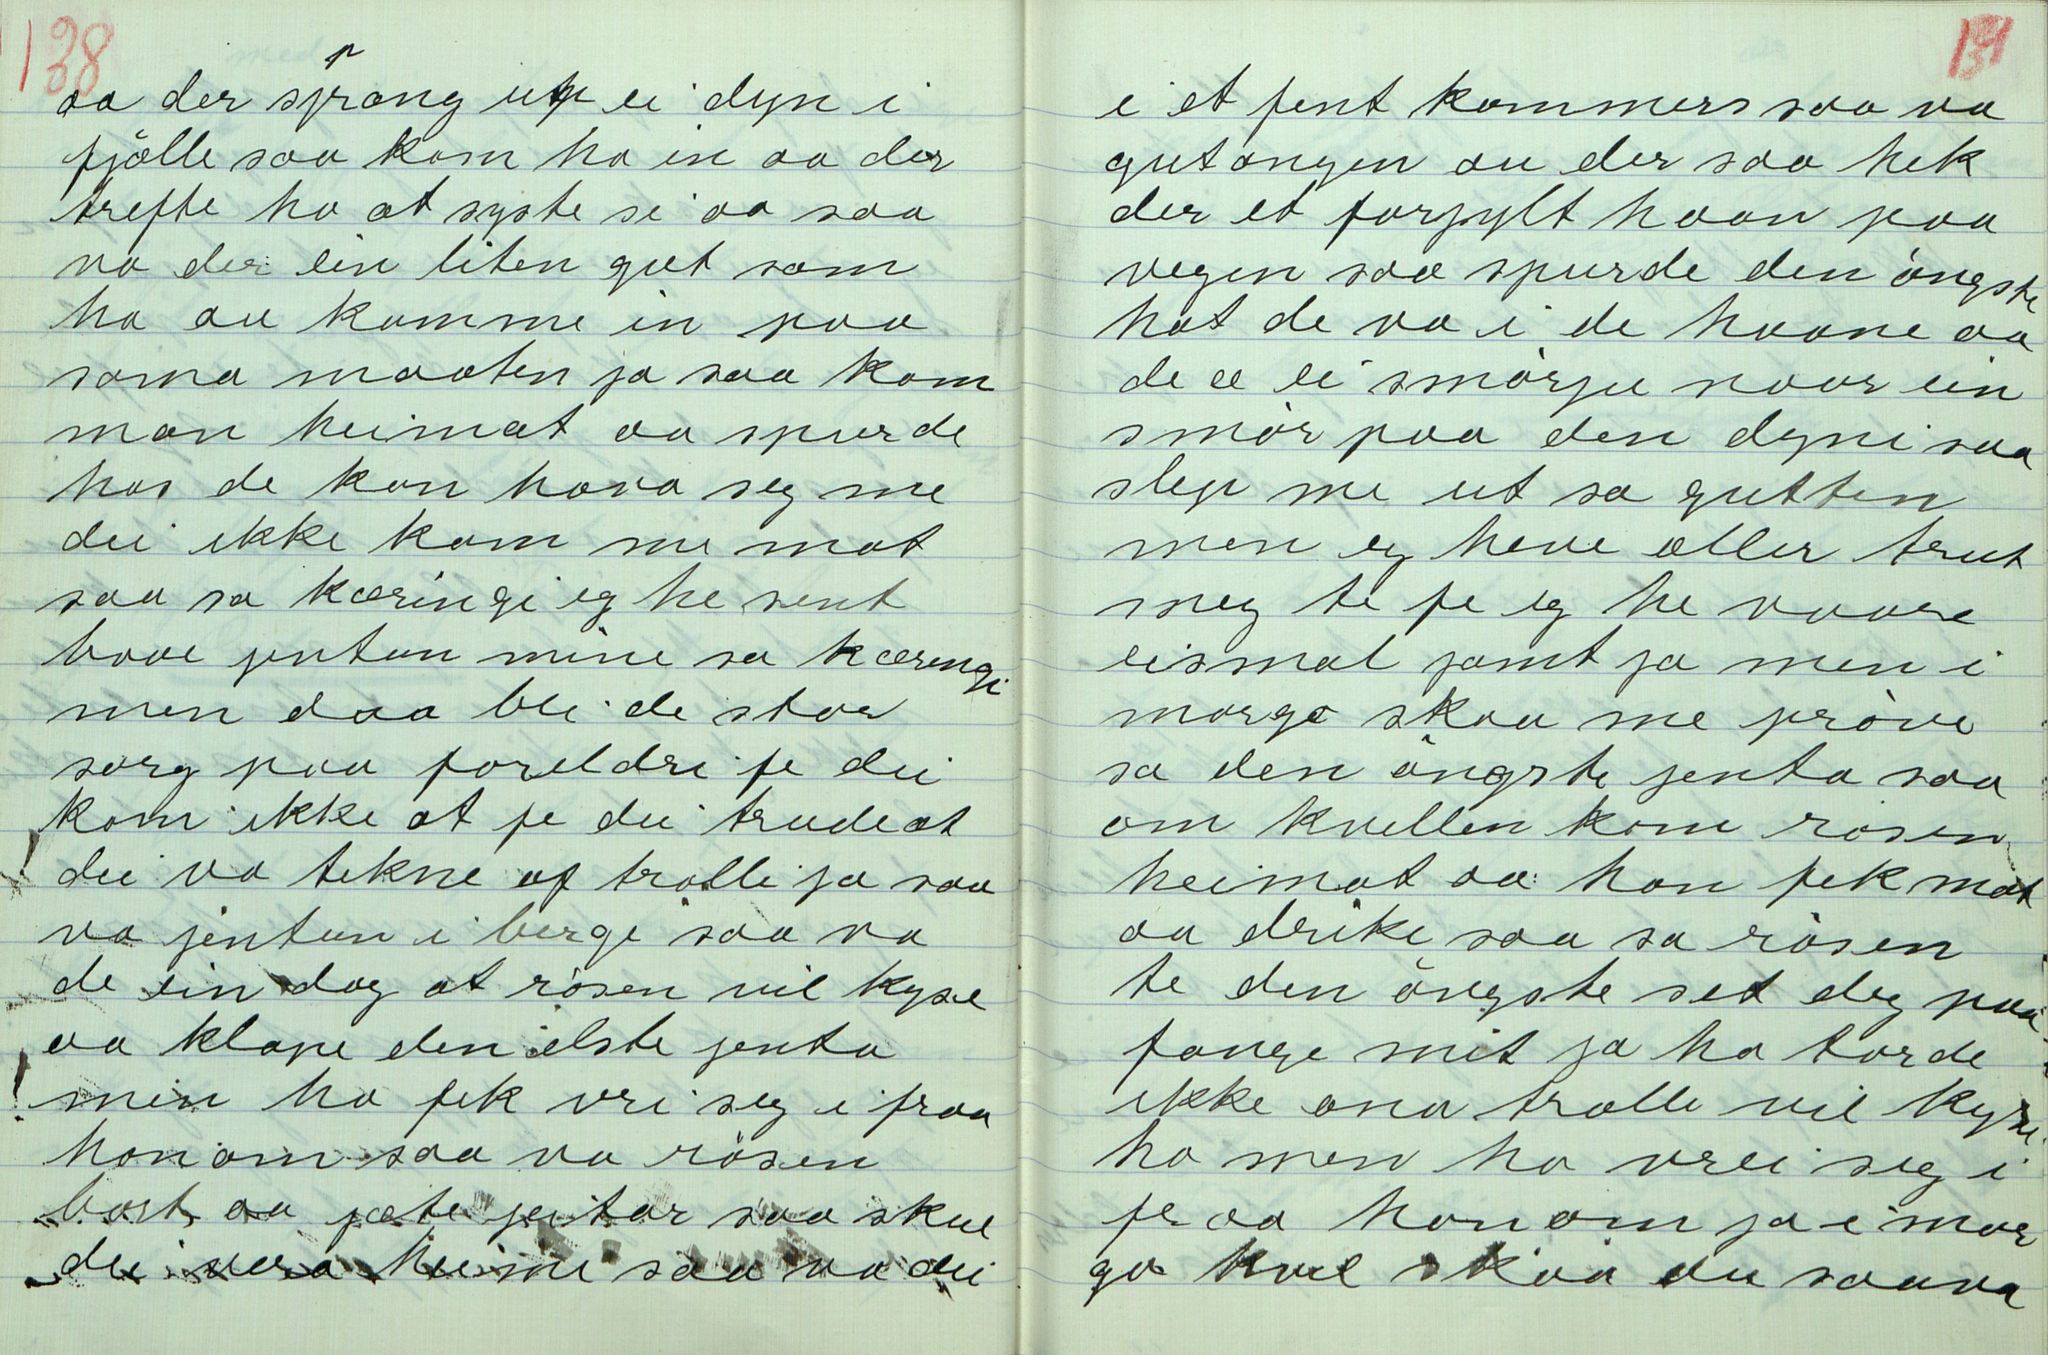 138
aa der sprang up ei dyn i
fjölle saa kom ho in aa der
trefte ho at syste si aa saa
va der ein liten gut som
ha au komme in paa
soma maaten ja saa kom
man heimat aa spurde
hos de kan hava seg me
dei ikke kom me mat
saa sa kæringi eg he sent
baae jentun mine sa kæringi
men daa blei de stor
sorg paa foreldri fe dei
kom ikke at fe dei trude at
dei va tekne af trolli ja saa
va jentun i bergi saa va
de ein dag at rösen vil kyse
aa klape den elste jenta
men ho fek vri seg i fraa
honom saa va rösen
bort aa jæte jeitar saa skul
dei vera heime saa va dei
131
i et fent kammers saa va
gutongen au der saa hek
der et forfylt haan paa
vegen saa spurde den öngste
hat de va i de haane aa
de æ ei smörju naar ein
smör paa den dyni saa
slep me ut sa gutten
men eg heve aller trut
meg te fe eg he vaare
eismal jamt ja men i
morgo skaa me pröve
sa den öngste jenta saa
om kvellen kom rösen
heimat aa han fek mat
aa drike saa sa rösen
te den öngste set deg paa
fange mit ja ho torde
ikke ana trolle vil kyse
ho men ho vrei seg i
fraa honom ja i mor
go kvel skaa du saava